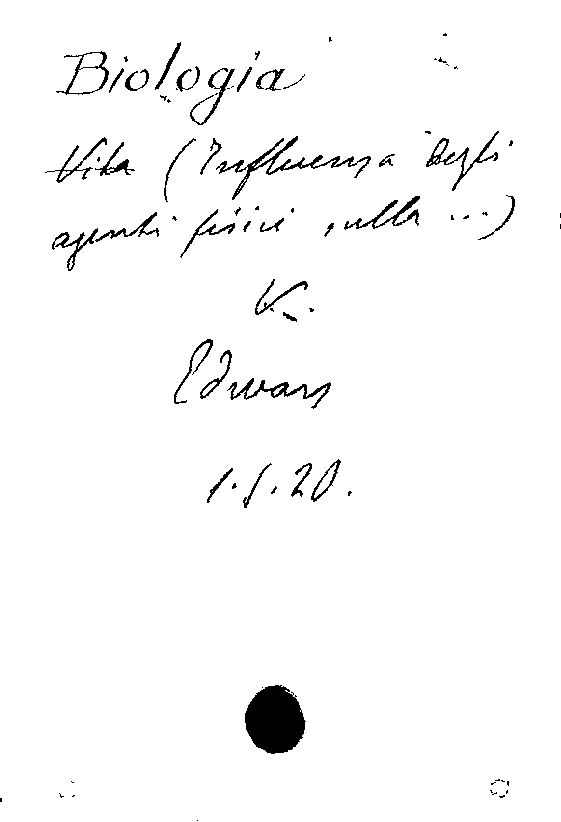 Biologia
Vita (Influenza degli
agenti fisici sulla ...)
V.
Edwars
1.5.20.